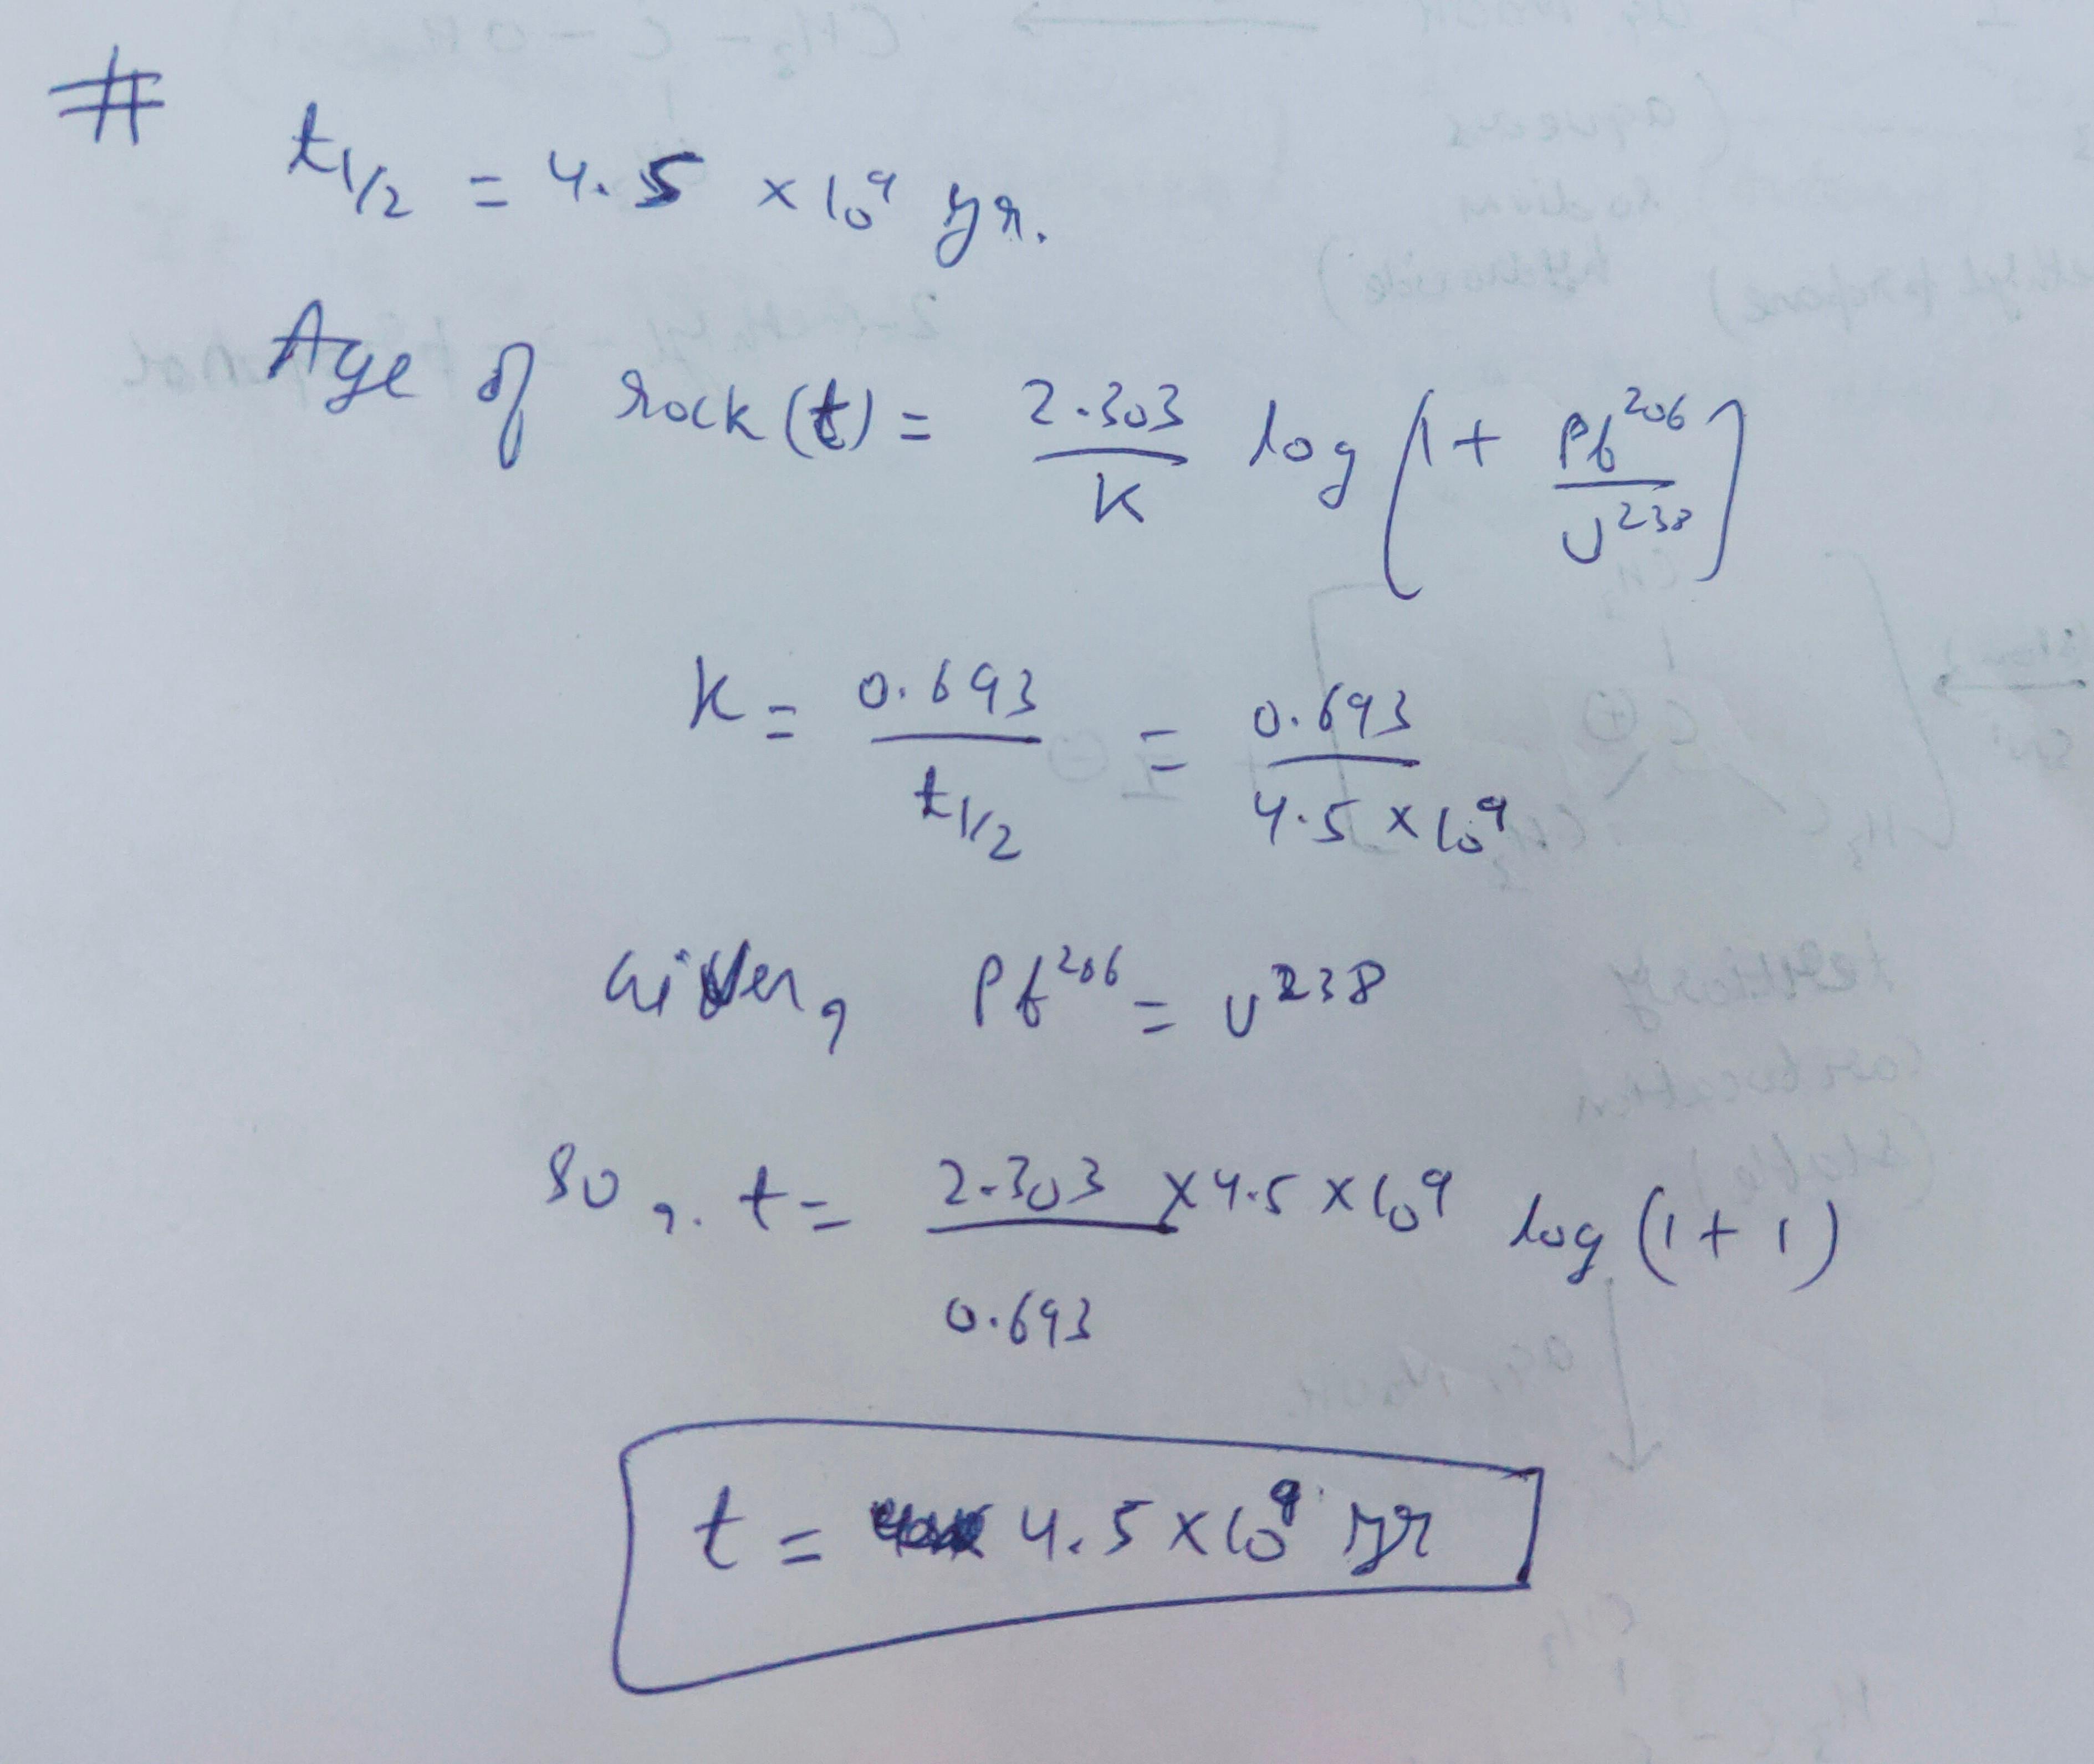 #
t1/2 = 4.5 × 10⁹ yr.
Age of rock (t) = 2.303/K log [1 + Pb²⁰⁶/U²³⁸]
K = 0.693/t1/2 = 0.693/4.5 × 10⁹
Given, Pb²⁰⁶ = U²³⁸
So, t = 2.303 × 4.5 × 10⁹/0.693 log (1 + 1)
t = 4.5 × 10⁹ yr